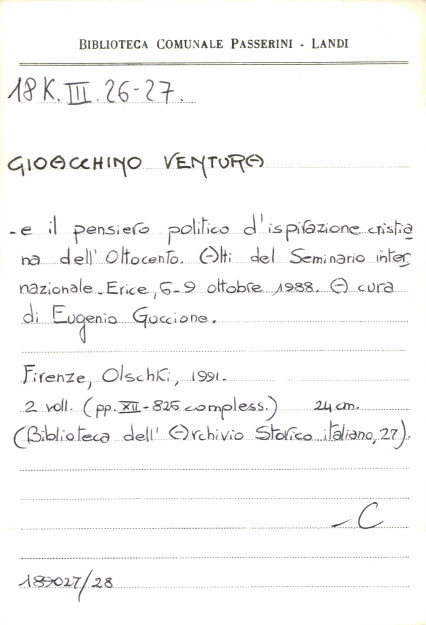 BIBLIOTECA COMUNALE PASSERINI - LANDI
18 K. III. 26-27.
GIOACCHINO VENTURA
- e il pensiero politico d'ispirazione cristia
na dell'Ottocento. Atti del Seminario inter
nazionale - Erice, 6-9 ottobre 1988. A cura
di Eugenio Guccione.
Firenze, Olschki, 1991.
2 voll. (pp. XII-825 compless.) 24 cm.
(Biblioteca dell'Archivio Storico italiano, 27).
- C
189027/28